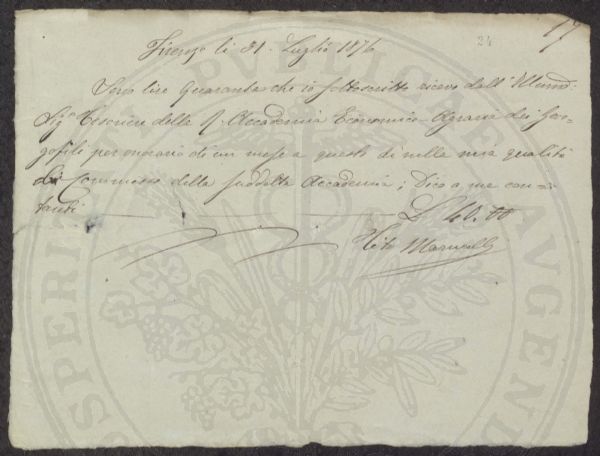 24
Firenze li 31. Luglio 1876
Sono lire Quaranta che io sottoscritto ricevo dall' Illumo:
Sigr Tesoriere della R. Accademia Economico-Agraria dei Geor-
gofili per onorario di un mese a questo dì nella mia qualità
di Commesso della suddetta Accademia; Dico a me con-
tanti L. 40. 00
PROSPERITATI PUBLICAE AUGENDAE